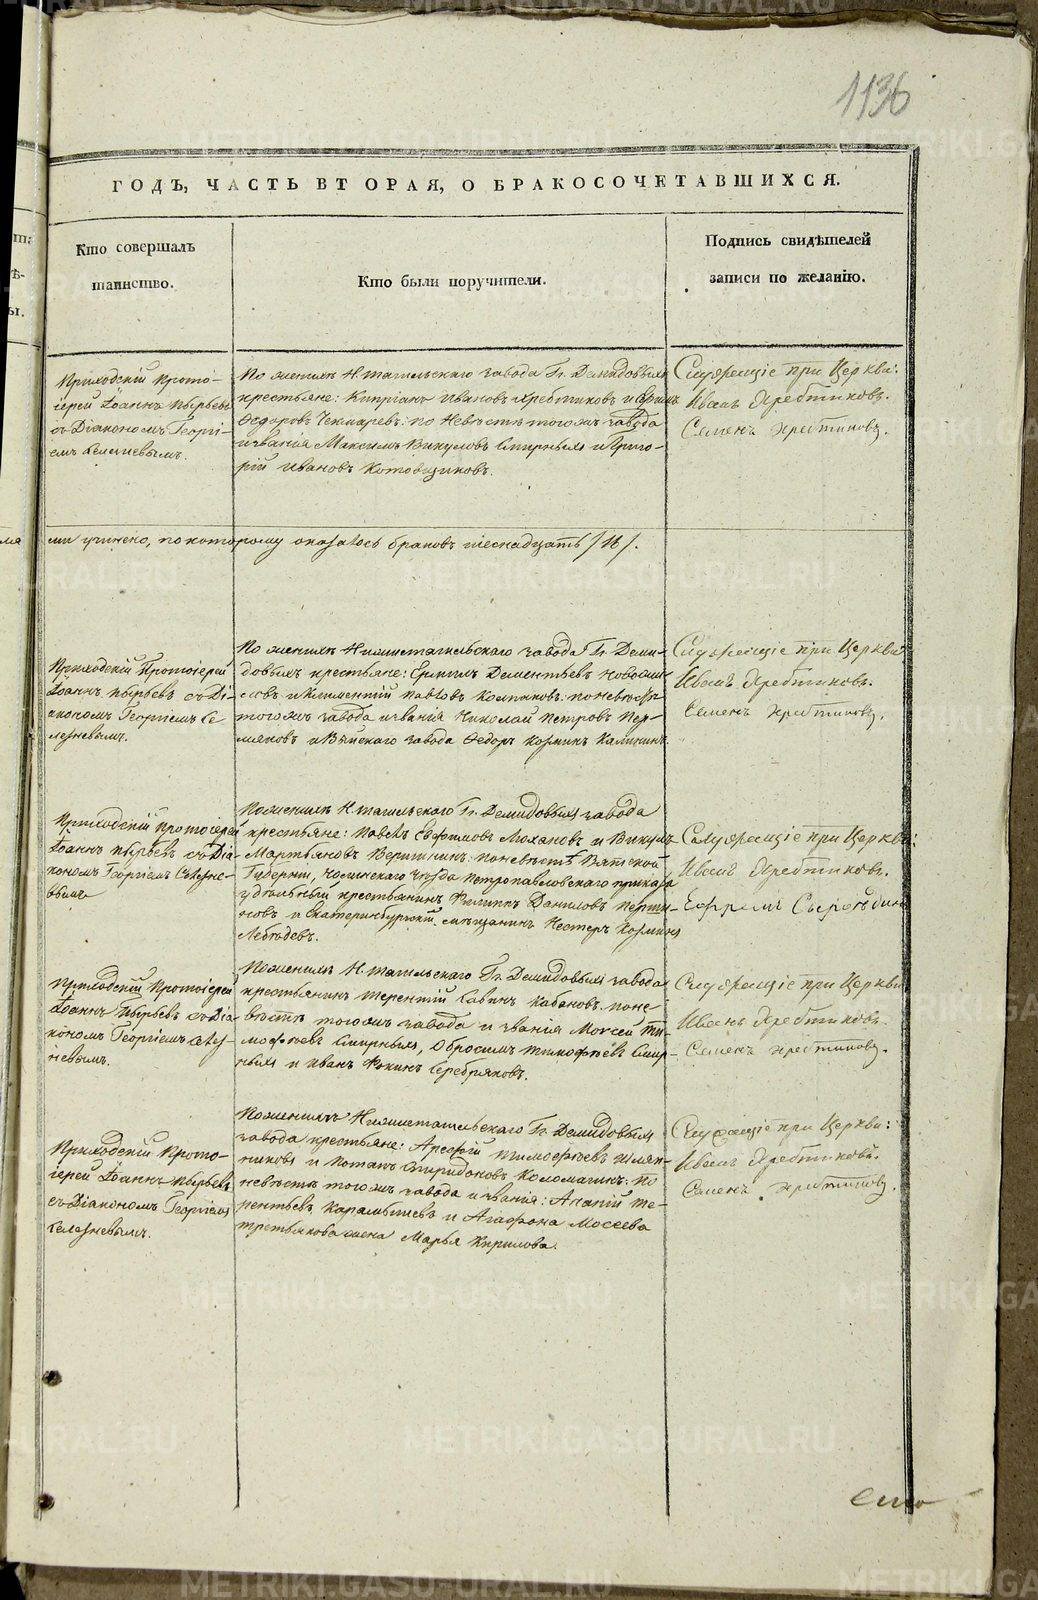 1136
ГОДЪ, ЧАСТЬ ВТОРАЯ, О БРАКОСОЧЕТАВШИХСЯ.
Кто совершалъ
таинство.
Кто были поручители.
Подпись свидѣтелей
записи по желанію.
Приходскій Прото-
іерей Іоаннъ Пырьевъ
съ Діакономъ Георгі-
емъ Селезневымъ.
По женихѣ Н.тагильскаго завода Гг. Демидовыхъ
крестьяне: Кипріанъ Ивановъ Хребтиковъ и
Ѳедоровъ Чекмаревъ: по невѣстѣ тогожъ завода
и званія Максимъ Викуловъ Смирныхъ и Григо-
рій Ивановъ Котовщиковъ.
Служащіе при Церкви:
Иванъ Хребтиковъ.
Семенъ Хребтиковъ.
ми учинено, по которому оказалось браковъ шеснадцать /16/.
Приходскій Протоіерей
Іоаннъ Пырьевъ съ Ді-
акономъ Георгіемъ Се
лезневымъ.
По женихѣ Нижнетагильскаго завода Гг. Деми-
довыхъ крестьяне: Дементьевъ
и Климентій Павловъ Колпаковъ: по невѣстѣ
тогожъ завода и званія Николай Петровъ Пер-
мяковъ и Выйскаго завода Ѳедоръ Козминъ Калининъ.
Служащіе при Церкви
Иванъ Хребтиковъ.
Семенъ Хребтиковъ.
Приходскій Протоіерей
Іоаннъ Пырьевъ съ Діа-
кономъ Георгіемъ Селезне-
вымъ
По женихѣ Н.тагильскаго Гг. Демидовыхъ завода
крестьяне: Павелъ Евфимовъ Моханов и Викулъ
Мартьяновъ Вершининъ: по невѣстѣ Вятской
Губерніи, уѣзда Петропавловскаго приказа
удѣльный крестьянинъ Филиппъ Даниловъ
новъ и Екатеринбургскій мѣщанинъ Нестеръ Козминъ
Лебѣдевъ.
Служащіе при Церкви:
Иванъ Хребтиковъ.
Ефремъ
Приходскій Протоіерей
Іоаннъ Пырьевъ съ Діа-
кономъ Георгіемъ Селез-
невымъ.
По женихѣ Н.тагильскаго Гг. Демидовыхъ завода
крестьянинъ Терентій Савинъ Кабановъ: по не-
вѣстѣ тогожъ завода и званія Моисей Ти-
мофѣевъ Смирныхъ, Обросимъ Тимофѣевъ Смир-
ныхъ и Иванъ Фокинъ Серебряковъ.
Служащіе при Церкви
Иванъ Хребтиковъ.
Семенъ Хребтиковъ.
Приходскій Прото-
іерей Іоаннъ Пырьевъ
съ Діакономъ Георгіемъ
Селезневымъ.
По женихѣ Нижнетагильскаго Гг. Демидовыхъ
завода крестьяне: Тимофѣевъ Шляп-
никовъ и Потапъ Спиридоновъ Коломагинъ: по
невѣстѣ тогожъ завода и званія: Те-
рентьевъ Карамышевъ и Агафона Мосеева
Третьякова жена Марья Кирилова.
Служащіе при Церкви:
Иванъ Хребтиковъ.
Семенъ Хребтиковъ.
METRIKI.GASO-URAL.RU